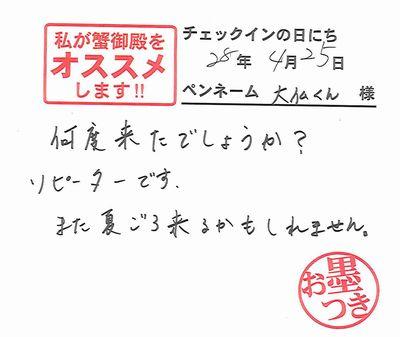 私が蟹御殿を
オススメ
します!!
チェックインの日にち
28年 4月25日
ペンネーム 大仏くん 様
何度来たでしょうか?
リピーターです.
また夏ごろ来るかもしれません。
お墨つき